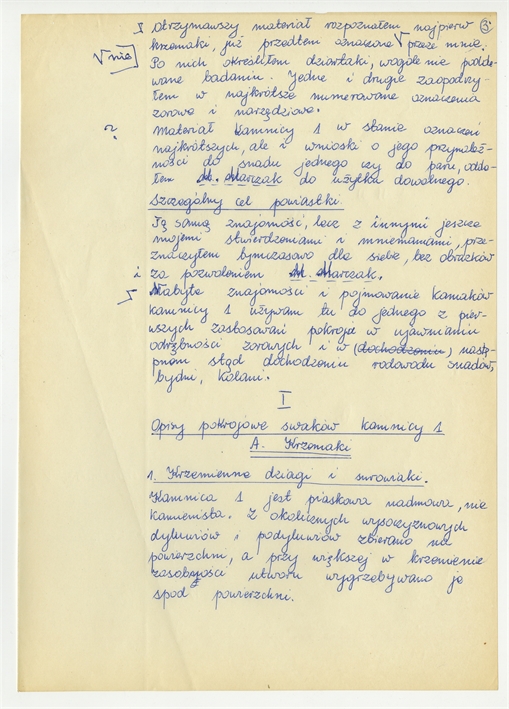 Otrzymawszy materiał rozpoznałem najpierw 3
krzemaki, już przedtem oznaczone √ przeze mnie.
√ nie
Po nich określiłem dziartaki, wogóle nie podda-
wane badaniu. Jedne i drugie zaopatrzy-
łem w najkrótsze numerowane oznaczenia
zorowe i narzędziowe.
? Materiał Kamnicy 1 w stanie oznaczeń
najkrótszych, ale i wnioski o jego przynależ-
ności do snadu jednego czy do paru, odda-
łem M. Marczak do użytku dowolnego.
Szczególny cel powiastki
Tę samą znajomość, lecz z innymi jeszcze
mojemi stwierdzeniami i mniemaniami, prze-
znaczyłem tymczasowo dla siebie, bez obrazków
i za pozwoleniem M. Marczak.
Nabyte znajomości i pojmowanie kamaków
kamnicy 1 używam tu do jednego z pier-
wszych zastosowań pokroju w ujawnianiu
odrębności zorowych i w (dochodzeniu) nastę-
pnom stąd dochodzeniu rodowodu snadów,
bydni, kolani.
I
Opisy pokrojowe swaków kamnicy 1
A. Krzemaki
1. Krzemienne dziagi i surowiaki.
Kamnica 1 jest piaskowa nadmowa, nie
kamienista. Z okolicznych wysoczyznowych
dyluwiów i podyluwiów zbierano na
powierzchni, a przy większej w krzemienie
zasobności utworu wygrzebywano je
spod powierzchni.